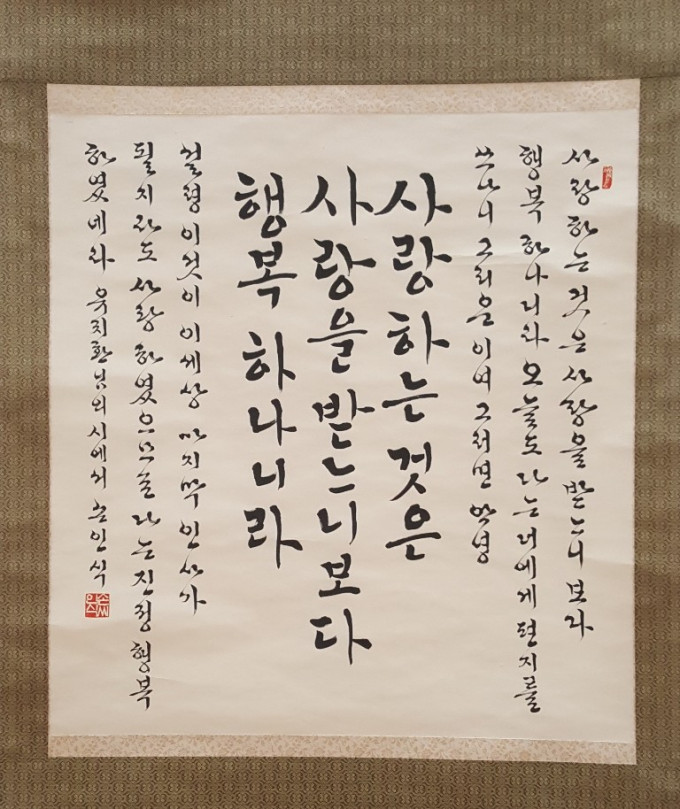 사랑하는 것은 사랑을 받느니보다
행복하나니라 오늘도 나는 너에게 편지를
쓰나니 그리운 이여 그러면 안녕
사랑하는 것은
사랑을 받느니보다
행복하나니라
설령 이것이 이세상 마지막 인사가
될지라도 사랑하였으므로 나는 진정 행복
하였네라 유치환님의 시에서 손인식